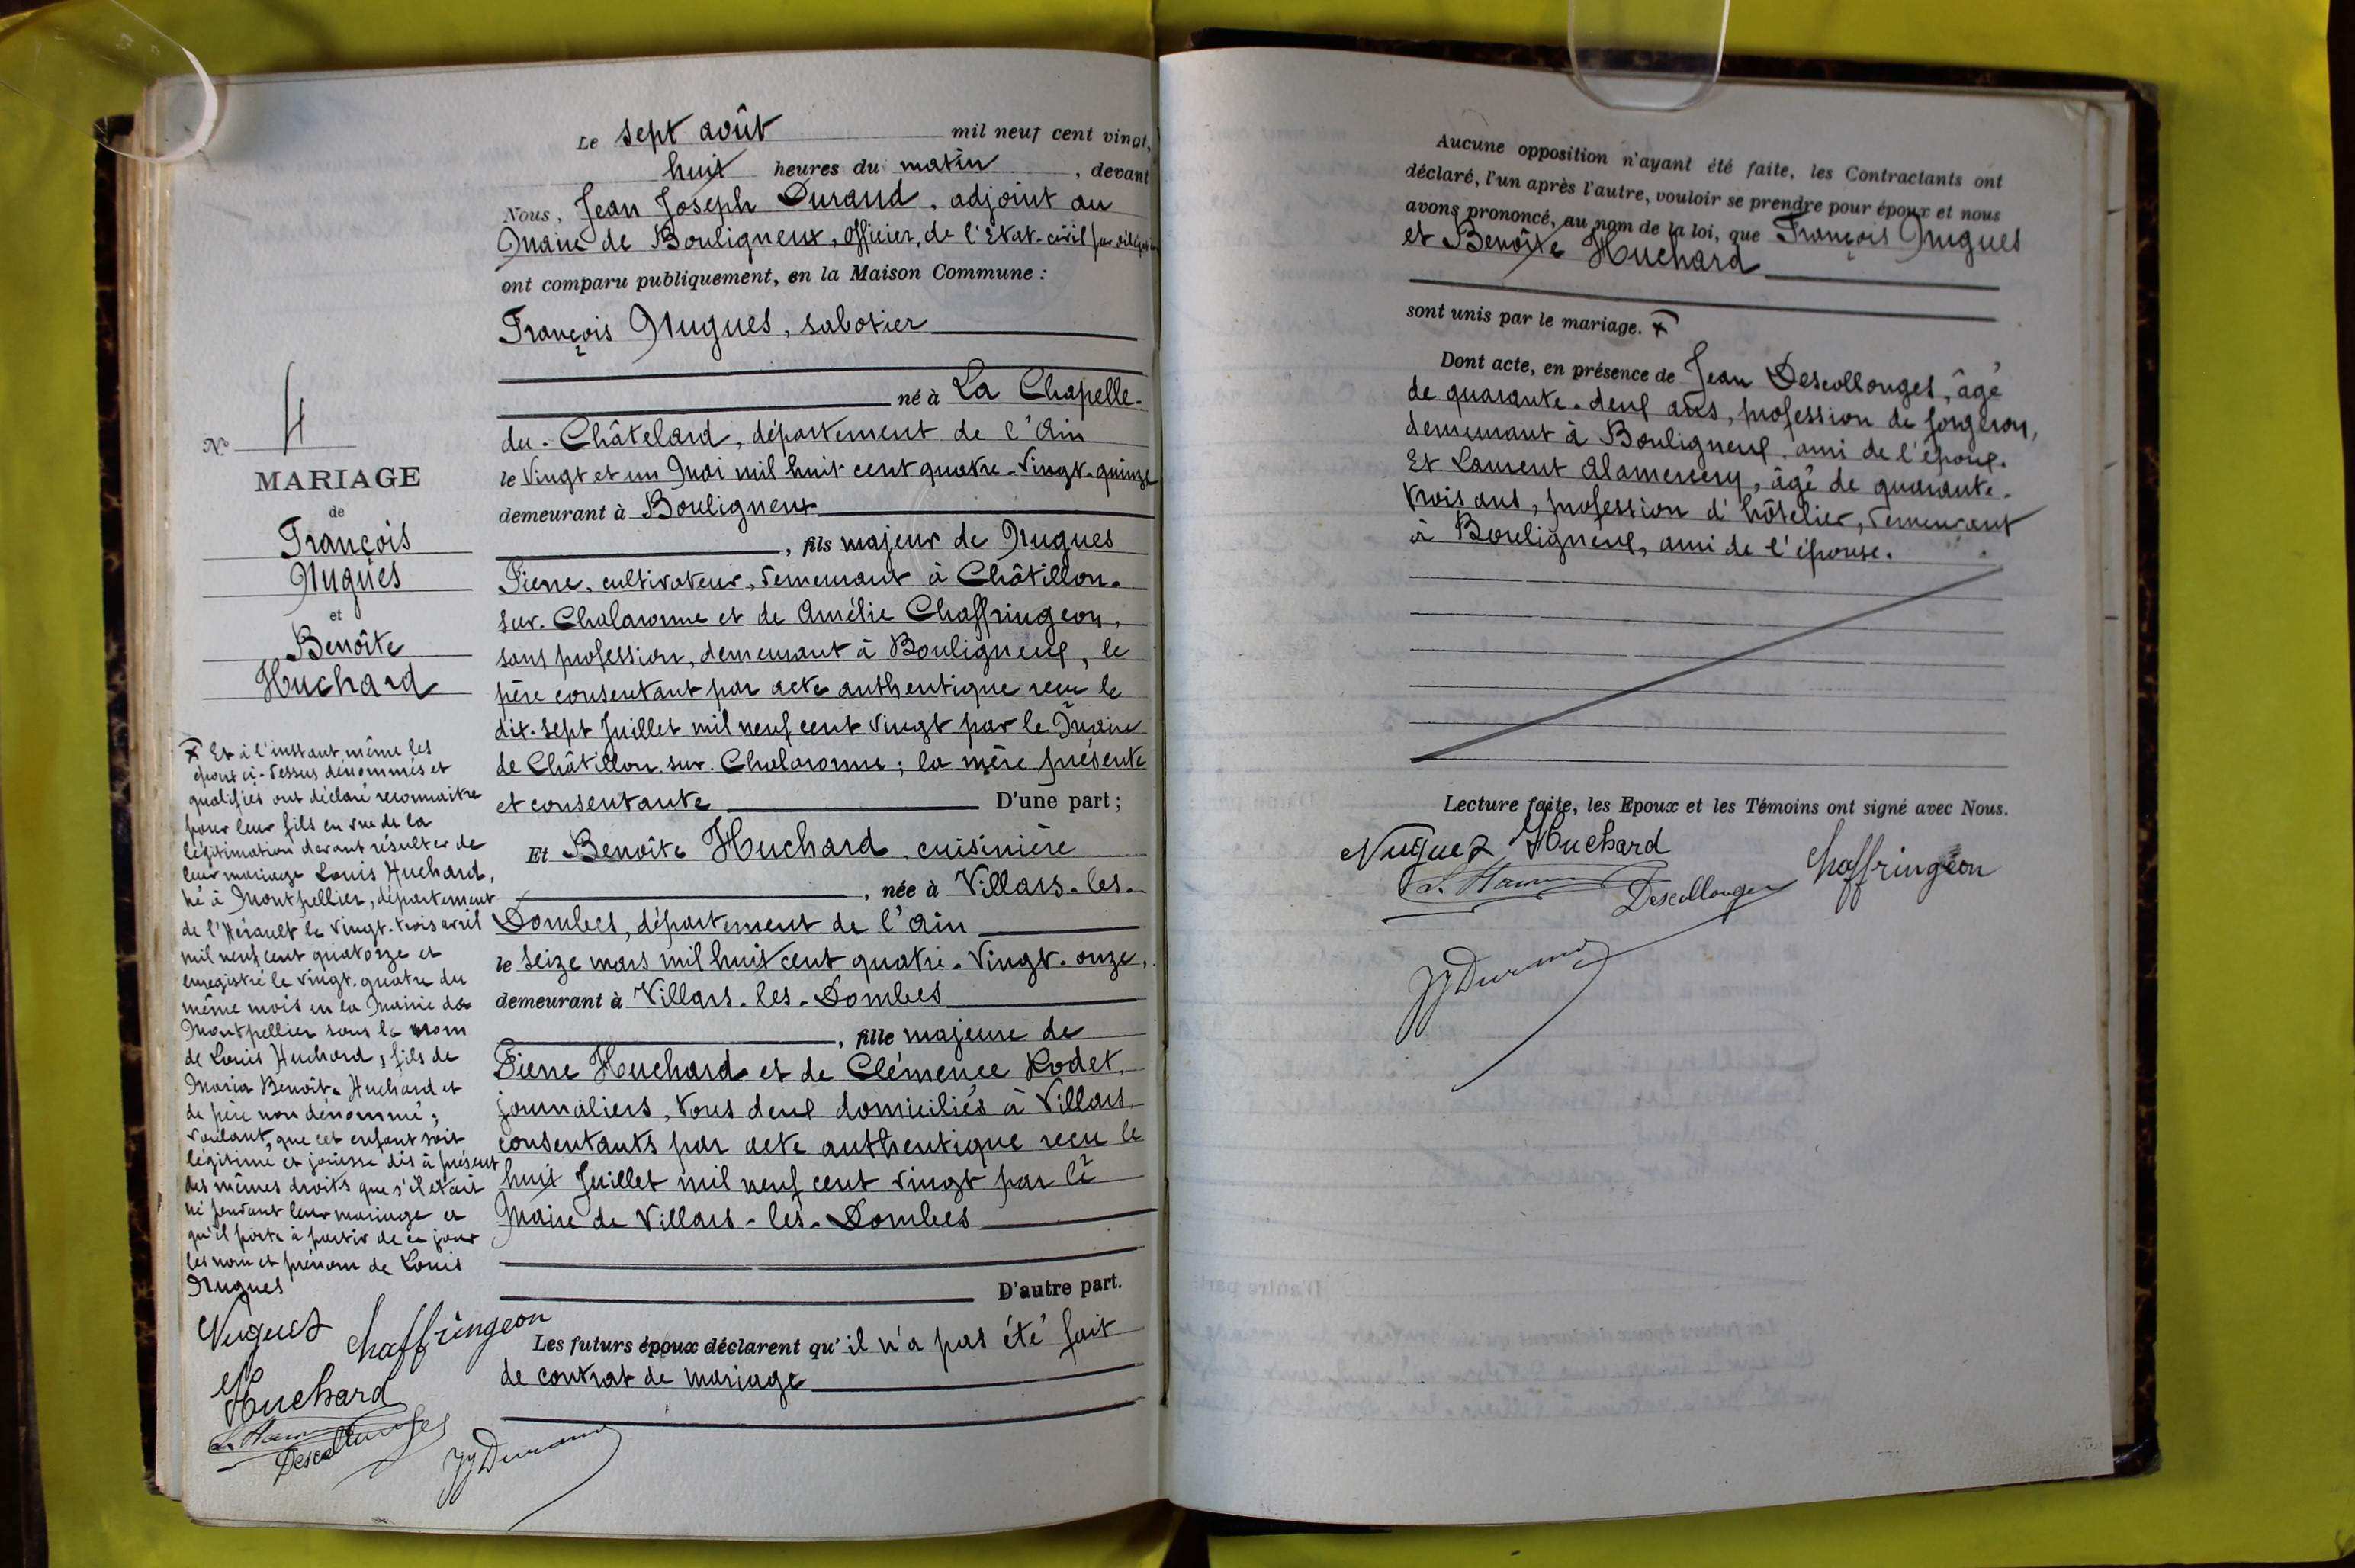 Le sept août mil neuf cent vingt,
huit heures du matin, devant
Nous, Jean Joseph Durand, adjoint au
Maire de Bouligneux, officier, de l'Etat-civil par délégation
ont comparu publiquement, en la Maison Commune :
François Nugues, sabotier
né à La Chapelle-
du-Châtelard, département de l'Ain
le Vingt et un Mai mil huit cent quatre-vingt-quinze
demeurant à Bouligneux
, fils majeur de Nugues
Pierre, cultivateur, demeurant à Châtillon-
sur-Chalaronne et de Amélie Chaffringeon,
sans profession, demeurant à Bouligneux, le
père consentant par acte authentique reçu le
dix-sept Juillet mil neuf cent vingt par le Maire
de Châtillon-sur-Chalaronne ; la mère présente
et consentante D'une part ;
Et Benoîte Huchard, cuisinière
, née à Villars-les-
Dombes, département de l'Ain
le seize mars mil huit cent quatre-vingt-onze,
demeurant à Villars-les-Dombes
, fille majeure de
Pierre Huchard et de Clémence Rodet,
journaliers, tous deux domiciliés à Villars
consentants par acte authentique reçu le
huit Juillet mil neuf cent vingt par le
Maire de Villars-les-Dombes
D'autre part.
Les futurs époux déclarent qu'il n'a pas été fait
de contrat de mariage
N° 4
MARIAGE
de
François
Nugues
et
Benoîte
Huchard
x Et à l'instant même les
époux ci-dessus dénommés et
qualifiés ont déclaré reconnaitre
pour leur fils en vue de la
légitimation devant résulter de
leur mariage Louis Huchard,
né à Montpellier, département
de l'Hérault le vingt-trois avril
mil neuf cent quatorze et
enregistré le vingt-quatre du
même mois en la Mairie de
Montpellier sous le nom
de Louis Huchard, fils de
Maria Benoîte Huchard et
de père non dénommé ;
voulant, que cet enfant soit
légitimé et jouisse dès à présent
des mêmes droits que s'il était
né pendant leur mariage et
qu'il porte à partir de ce jour
les nom et prénom de Louis
Nugues
Nugues Chaffringeon
Huchard
Descollonges
JJDurand
Aucune opposition n'ayant été faite, les Contractants ont
déclaré, l'un après l'autre, vouloir se prendre pour époux et nous
avons prononcé, au nom de la loi, que François Nugues
et Benoîte Huchard
sont unis par le mariage. x
Dont acte, en présence de Jean Descollonges, âgé
de quarante-deux ans, profession de forgeron,
demeurant à Bouligneux, ami de l'époux.
Et Laurent Alamercery, âgé de quarante-
trois ans, profession d'hôtelier, demeurant
à Bouligneux, ami de l'épouse.
Lecture faite, les Epoux et les Témoins ont signé avec Nous.
Nugues Huchard
Descollonges Chaffringeon
JJDurand